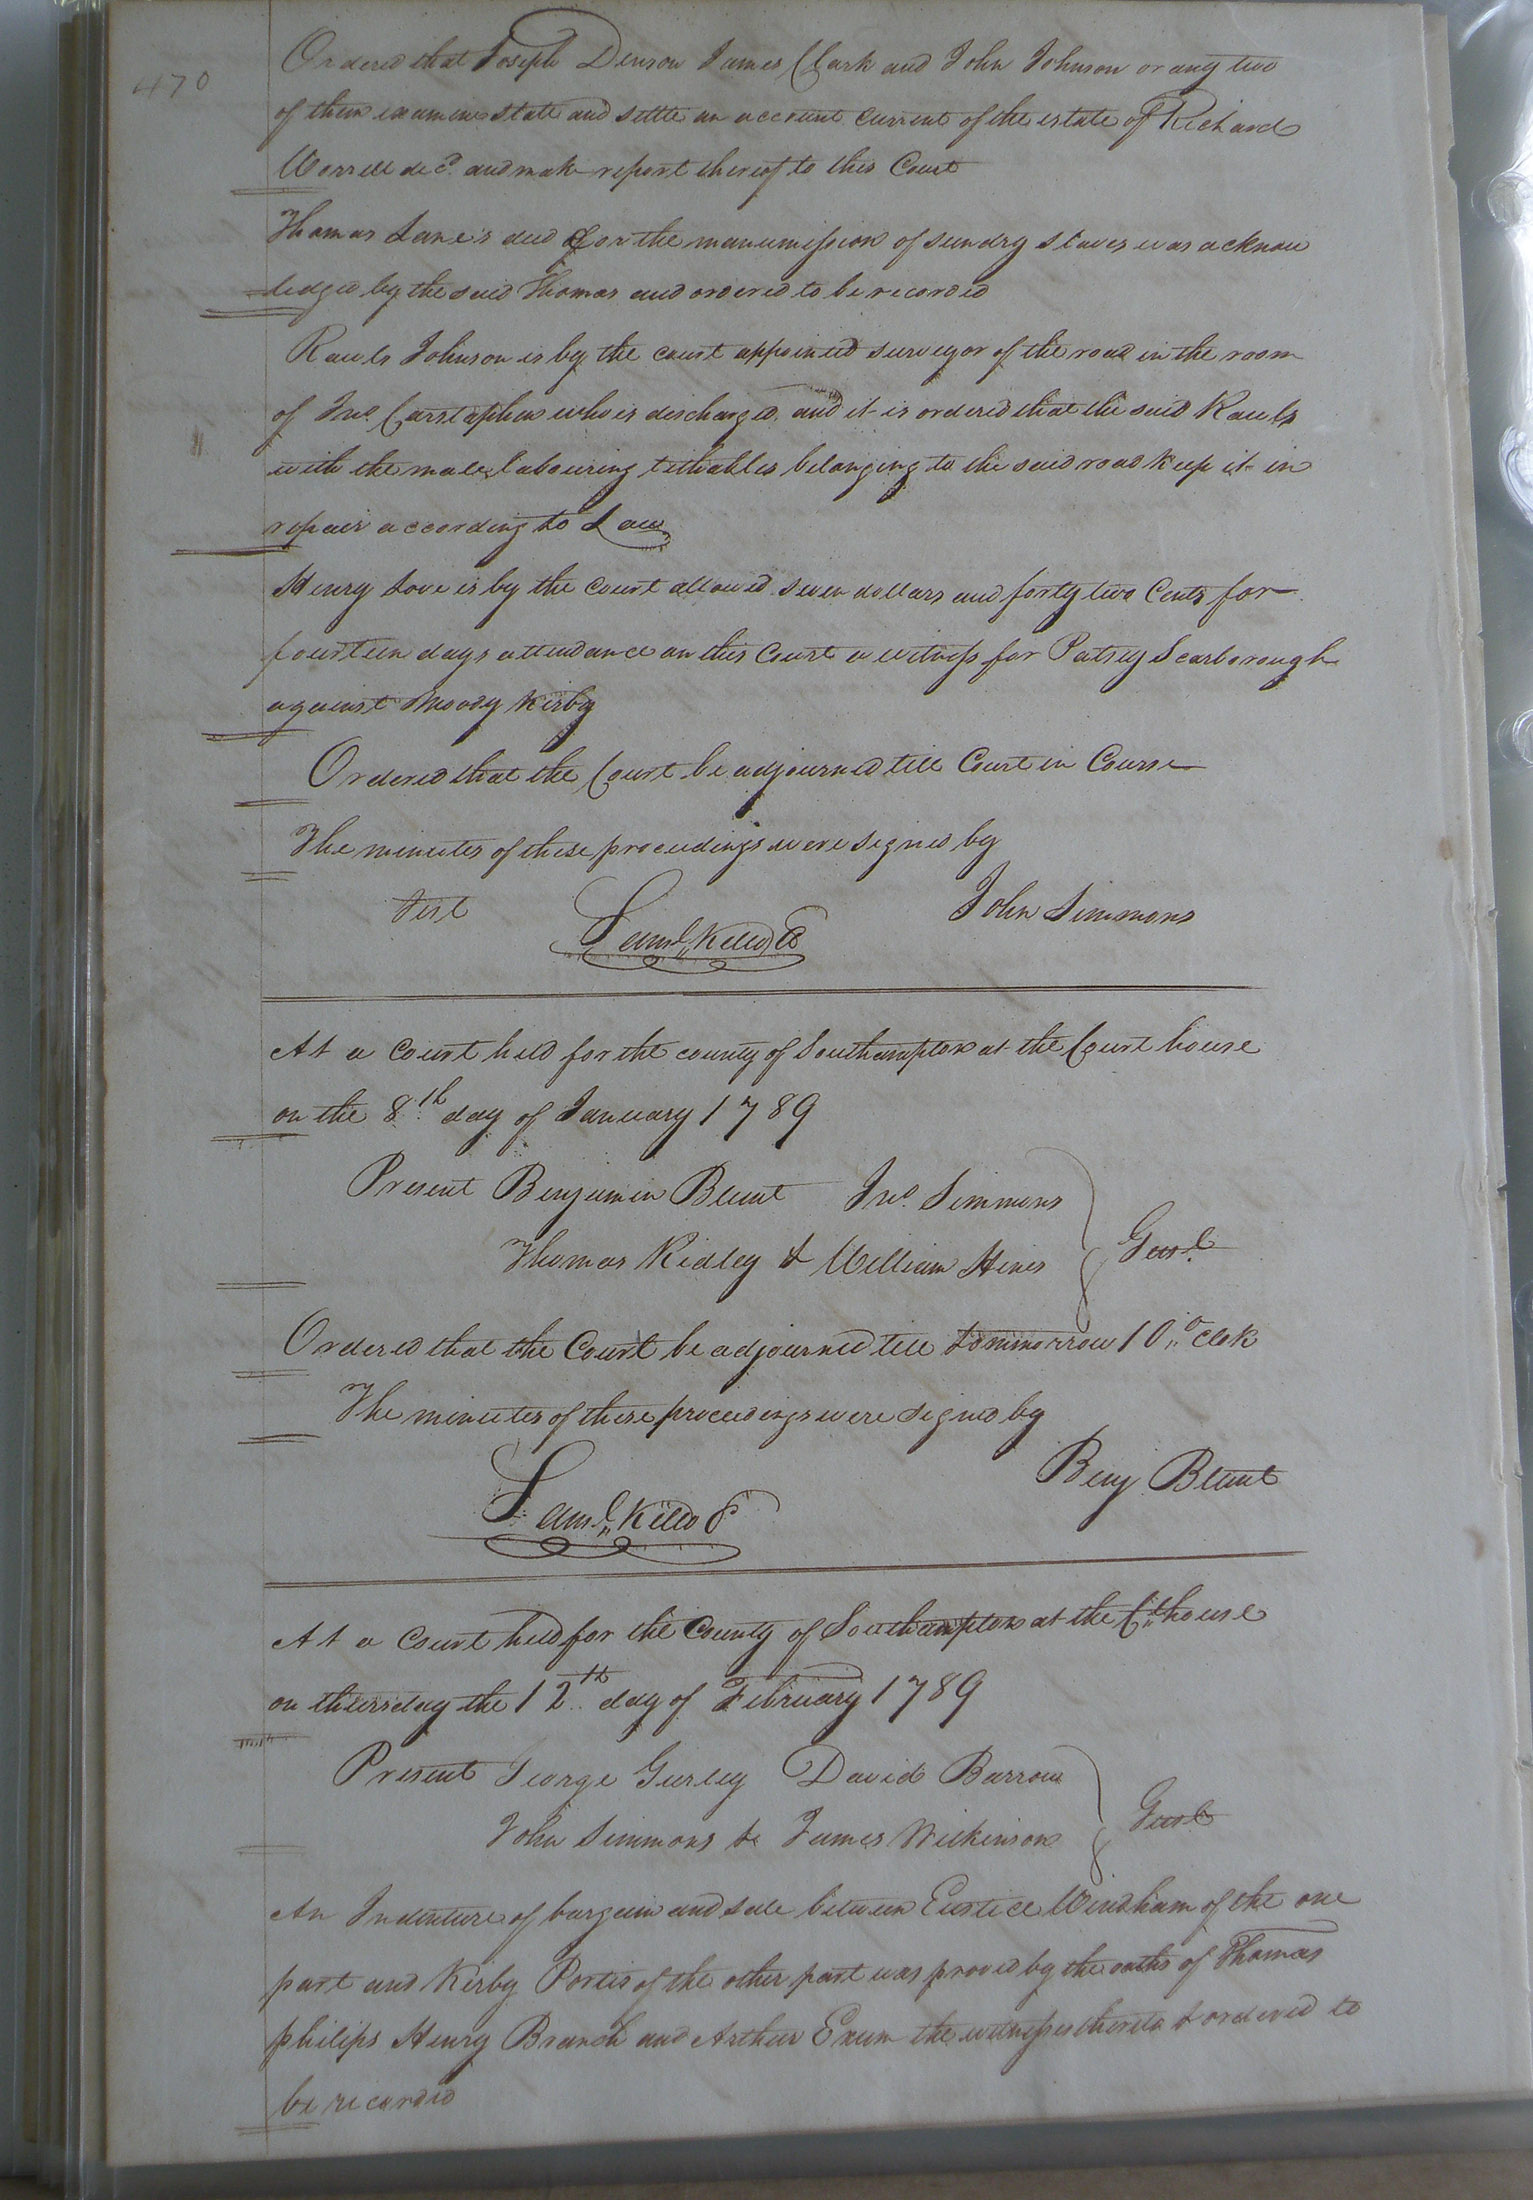 470
Ordered that Joseph Denson James Clark and John Johnson or any two
of them examine state and settle an account current of the estate of Richard
Worrell decd. and make report thereof to this Court
Thomas Lane's deed for the manumission of sundry slaves was acknow
ledged by the said Thomas and ordered to be recorded
Rawls Johnson is by the court appointed surveyor of the road in the room
of Jno. Carstaphen who is discharged. and it is ordered that the said Rawls
with the male labouring tithables belonging to the said road keep it in
repair according to Law
Henry Love is by the court allowed seven dollars and forty two Cents for
fourteen days attendance on this Court a witness for Patsey Scarborough
against Moody Kirby
Ordered that the Court be adjourned till Court in Course
The minutes of these proceedings were signed by
Test Saml. Kello John Simmons
At a Court held for the county of Southampton at the Court house
on the 8th day of January 1789
Present Benjamin Blunt Jno. Simmons
Thomas Ridley & William Hines Gent.
Ordered that the Court be adjourned till tommorrow 10 o Clok
The minutes of these proceedings were signed by
Saml. Kello Benj Blunt
At a Court held for the County of Southampton at the Ct. house
on thursday the 12th day of February 1789
Present George Gurley David Barrow
John Simmons & James Wilkinson Gent
An Indenture of bargain and sale between Eustice Windham of the one
part and Kirby Portis of the other part was proved by the oaths of Thomas
philips Henry Branch and Arthur Exum the witnesses thereto & ordered to
be recorded